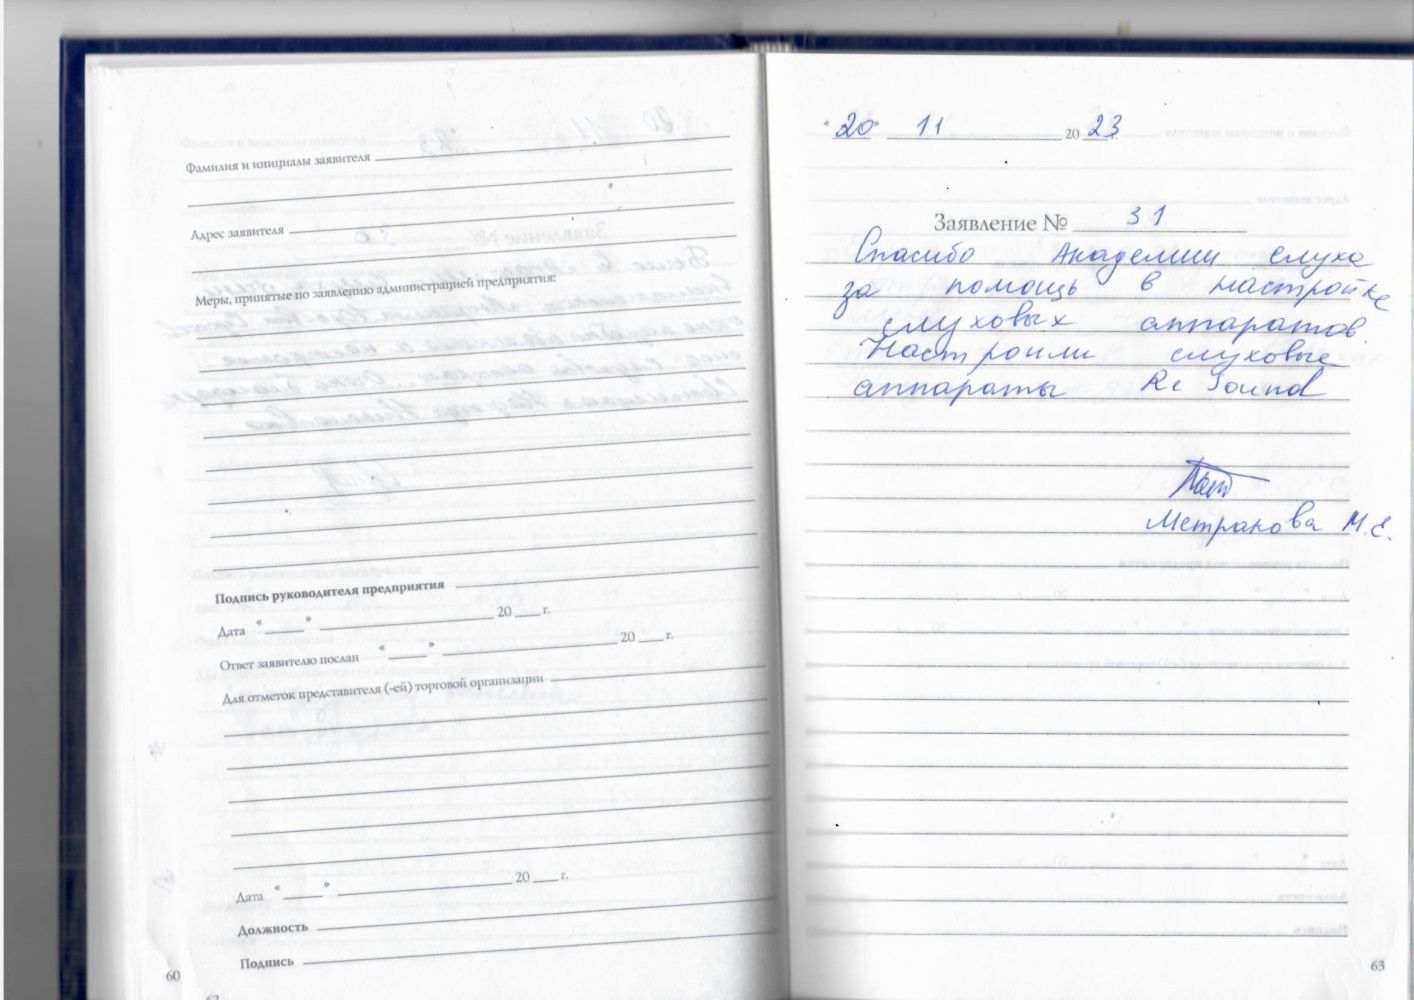 Фамилия и инициалы заявителя
Адрес заявителя
Меры, принятые по заявлению администрацией предприятия:
Подпись руководителя предприятия
Дата « » 20 г.
Ответ заявителю послан « » 20 г.
Для отметок представителя (-ей) торговой организации
Дата « » 20 г.
Должность
Подпись
60
62
"20" 11 2023
Заявление № 31
Спасибо Академии слуха
за помощь в настройке
слуховых аппаратов.
Настроили слуховые
аппараты Re Sound
Метракова М.Е.
63